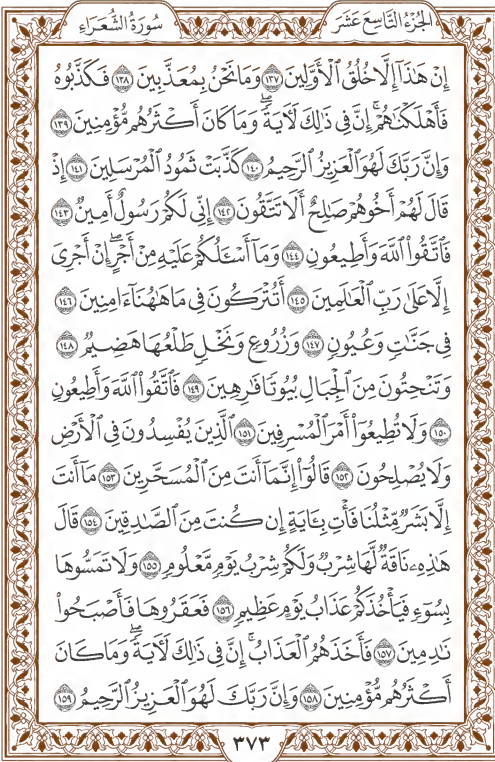 الجزء التاسع عشر
سورة الشعراء
إِنْ هَٰذَآ إِلَّا خُلُقُ ٱلْأَوَّلِينَ ١٣٧ وَمَا نَحْنُ بِمُعَذَّبِينَ ١٣٨ فَكَذَّبُوهُ
فَأَهْلَكْنَٰهُمْ ۗ إِنَّ فِى ذَٰلِكَ لَءَايَةً ۖ وَمَا كَانَ أَكْثَرُهُم مُّؤْمِنِينَ ١٣٩
وَإِنَّ رَبَّكَ لَهُوَ ٱلْعَزِيزُ ٱلرَّحِيمُ ١٤٠ كَذَّبَتْ ثَمُودُ ٱلْمُرْسَلِينَ ١٤١ إِذْ
قَالَ لَهُمْ أَخُوهُمْ صَٰلِحٌ أَلَا تَتَّقُونَ ١٤٢ إِنِّى لَكُمْ رَسُولٌ أَمِينٌ ١٤٣
فَٱتَّقُوا۟ ٱللَّهَ وَأَطِيعُونِ ١٤٤ وَمَآ أَسْـَٔلُكُمْ عَلَيْهِ مِنْ أَجْرٍ ۖ إِنْ أَجْرِىَ
إِلَّا عَلَىٰ رَبِّ ٱلْعَٰلَمِينَ ١٤٥ أَتُتْرَكُونَ فِى مَا هَٰهُنَآ ءَامِنِينَ ١٤٦
فِى جَنَّٰتٍ وَعُيُونٍ ١٤٧ وَزُرُوعٍ وَنَخْلٍ طَلْعُهَا هَضِيمٌ ١٤٨
وَتَنْحِتُونَ مِنَ ٱلْجِبَالِ بُيُوتًا فَٰرِهِينَ ١٤٩ فَٱتَّقُوا۟ ٱللَّهَ وَأَطِيعُونِ
١٥٠ وَلَا تُطِيعُوٓا۟ أَمْرَ ٱلْمُسْرِفِينَ ١٥١ ٱلَّذِينَ يُفْسِدُونَ فِى ٱلْأَرْضِ
وَلَا يُصْلِحُونَ ١٥٢ قَالُوٓا۟ إِنَّمَآ أَنتَ مِنَ ٱلْمُسَحَّرِينَ ١٥٣ مَآ أَنتَ
إِلَّا بَشَرٌ مِّثْلُنَا فَأْتِ بِـَٔايَةٍ إِن كُنتَ مِنَ ٱلصَّٰدِقِينَ ١٥٤ قَالَ
هَٰذِهِۦ نَاقَةٌ لَّهَا شِرْبٌ وَلَكُمْ شِرْبُ يَوْمٍ مَّعْلُومٍ ١٥٥ وَلَا تَمَسُّوهَا
بِسُوٓءٍ فَيَأْخُذَكُمْ عَذَابُ يَوْمٍ عَظِيمٍ ١٥٦ فَعَقَرُوهَا فَأَصْبَحُوا۟
نَٰدِمِينَ ١٥٧ فَأَخَذَهُمُ ٱلْعَذَابُ ۗ إِنَّ فِى ذَٰلِكَ لَءَايَةً ۖ وَمَا كَانَ
أَكْثَرُهُم مُّؤْمِنِينَ ١٥٨ وَإِنَّ رَبَّكَ لَهُوَ ٱلْعَزِيزُ ٱلرَّحِيمُ ١٥٩
٣٧٣